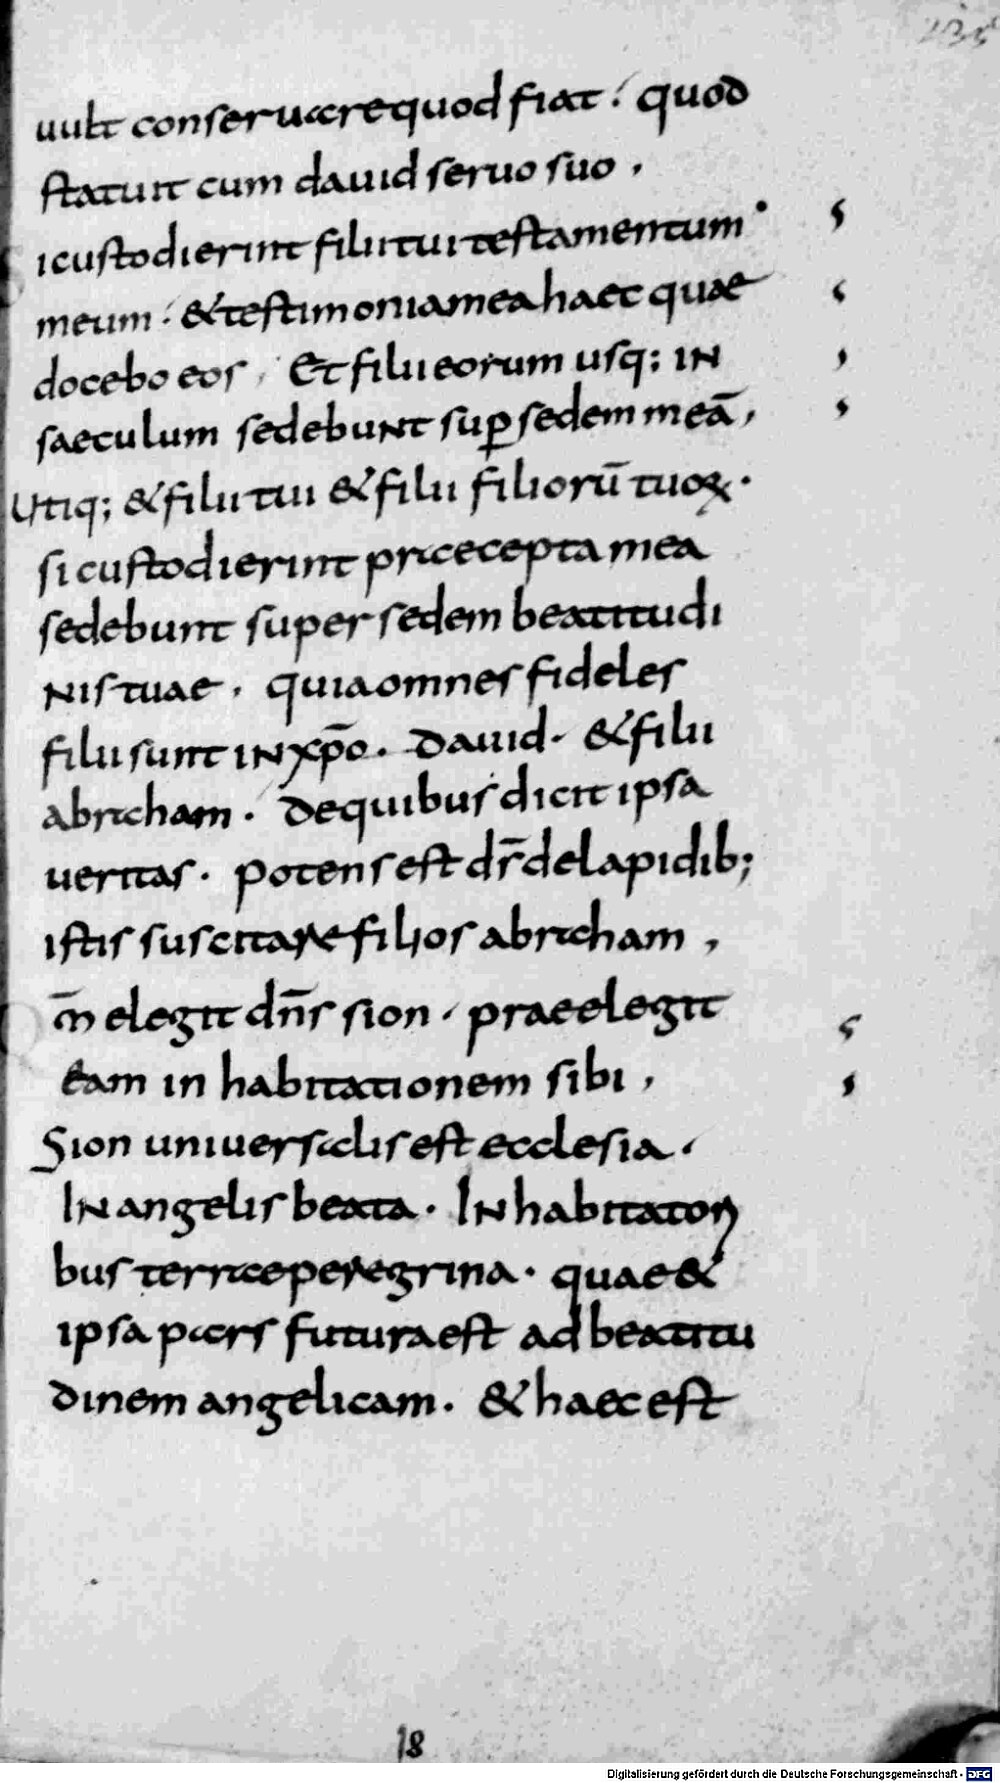 235
uult conseruare quod fiat · quod
statuit cum dauid seruo suo ,
i custodierint filii tui testamentum ·
meum · & testimonia mea haec quae
docebo eos , Et filii eorum usq; IN
saeculum sedebunt sup sedem meā ,
Utiq; & filii tui & filii filiorū tuoꝝ ·
si custodierint praecepta mea
sedebunt super sedem beatitudi
Nis tuae , quia omnes fideles
filii sunt IN xp̄o · Dauid · & filii
abraham · De quibus dicit ipsa
ueritas · potens est ds̄ de lapidib;
istis suscitare filios abraham ,
m̄ elegit dn̄s sion · praeelegit
Eam in habitationem sibi ,
Sion uniuersalis est ecclesia ·
IN angelis beata · IN habitatori
bus terrae peregrina · quae &
ipsa pars futura est ad beatitu
dinem angelicam · & haec est
18
Digitalisierung gefördert durch die Deutsche Forschungsgemeinschaft - DFG